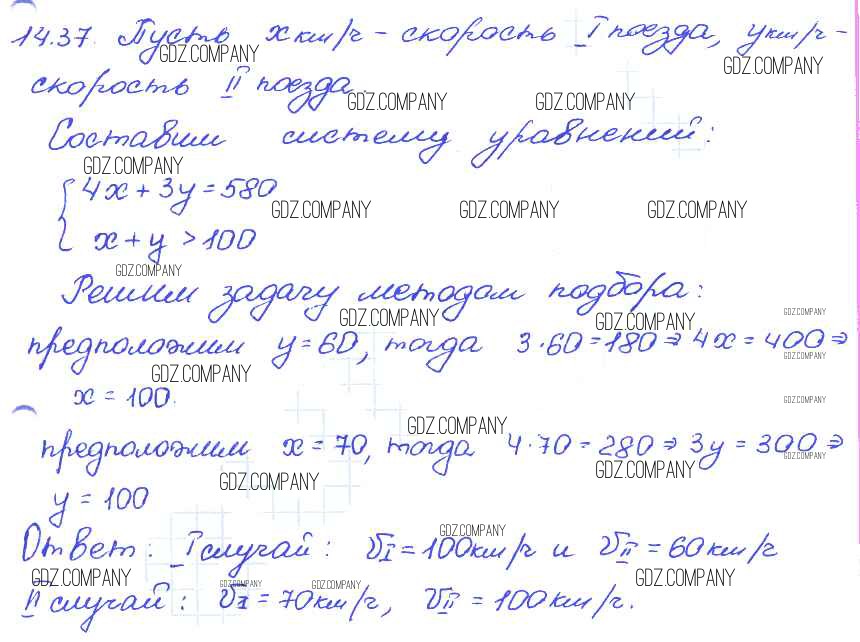 14.37. Пусть x км/ч - скорость I поезда, y км/ч -
GDZ.COMPANY GDZ.COMPANY
скорость II поезда.
GDZ.COMPANY GDZ.COMPANY
Составим систему уравнений:
GDZ.COMPANY
4x + 3y = 580
GDZ.COMPANY GDZ.COMPANY GDZ.COMPANY
x + y > 100
GDZ.COMPANY
Решим задачу методом подбора:
GDZ.COMPANY GDZ.COMPANY GDZ.COMPANY
предположим y = 60, тогда 3·60 = 180 ⇒ 4x = 400 ⇒
GDZ.COMPANY GDZ.COMPANY
x = 100.
GDZ.COMPANY
GDZ.COMPANY
предположим x = 70, тогда 4·70 = 280 ⇒ 3y = 300 ⇒
GDZ.COMPANY GDZ.COMPANY GDZ.COMPANY
y = 100
GDZ.COMPANY
Ответ: I случай: VI = 100 км/ч и VII = 60 км/ч
GDZ.COMPANY GDZ.COMPANY GDZ.COMPANY GDZ.COMPANY
II случай: VI = 70 км/ч, VII = 100 км/ч.